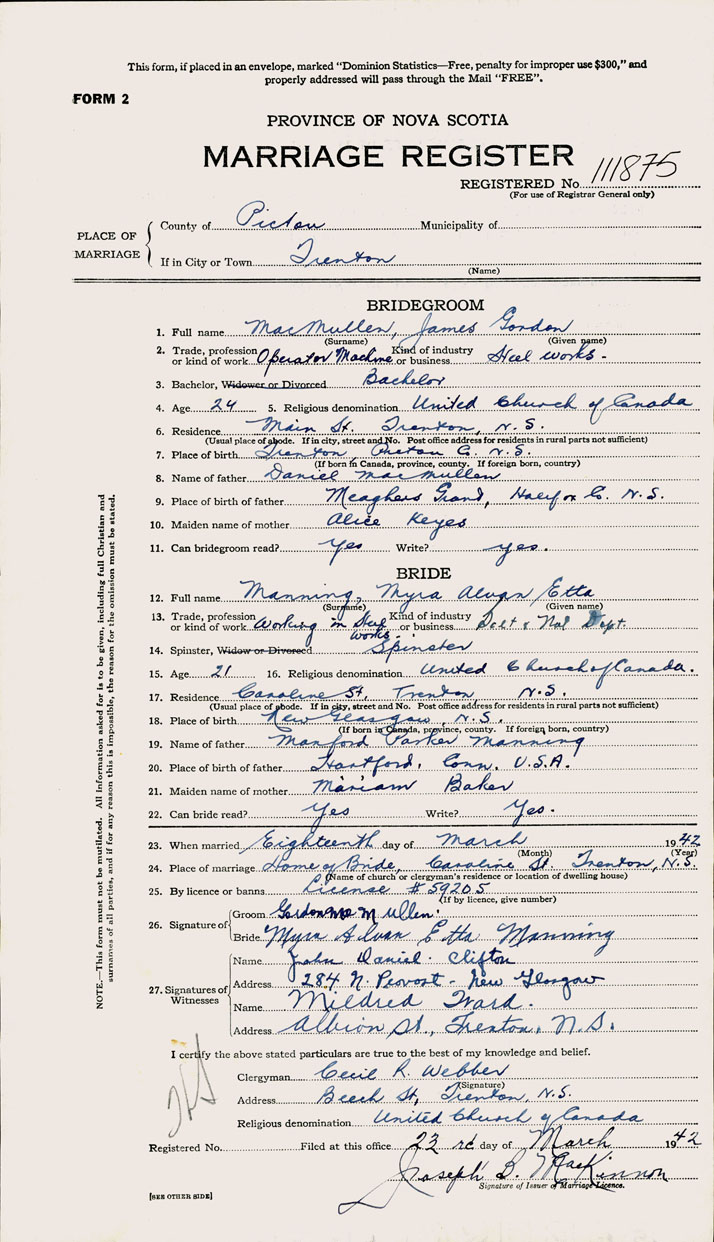 This form, if placed in an envelope, marked "Dominion Statistics—Free, penalty for improper use $300," and
properly addressed will pass through the Mail "FREE".
FORM 2
PROVINCE OF NOVA SCOTIA
MARRIAGE REGISTER
REGISTERED No. 111875
(For use of Registrar General only)
PLACE OF MARRIAGE
County of Pictou Municipality of
If in City or Town Trenton
(Name)
BRIDEGROOM
1. Full name MacMullen, James Gordon
(Surname) (Given name)
2. Trade, profession or kind of work Operator Machine Kind of industry or business Steel works -
3. Bachelor, Widower or Divorced Bachelor
4. Age 24 5. Religious denomination United Church of Canada
6. Residence Main St. Trenton, N.S.
(Usual place of abode. If in city, street and No. Post office address for residents in rural parts not sufficient)
7. Place of birth Trenton Pictou C. N.S.
(If born in Canada, province, county. If foreign born, country)
8. Name of father Daniel MacMullen
9. Place of birth of father Meaghers Grand, Halifax Co. N.S.
10. Maiden name of mother Alice Keyes
11. Can bridegroom read? yes Write? yes.
BRIDE
12. Full name Manning, Myra Alvan Etta
(Surname) (Given name)
13. Trade, profession or kind of work Working in Steel works. Kind of industry or business Bolt & Nal Dept.
14. Spinster, Widow or Divorced Spinster
15. Age 21 16. Religious denomination United Church of Canada.
17. Residence Caroline St, Trenton, N.S.
(Usual place of abode. If in city, street and No. Post office address for residents in rural parts not sufficient)
18. Place of birth New Glasgow, N.S.
(If born in Canada, province, county. If foreign born, country)
19. Name of father Manford Parker Manning
20. Place of birth of father Hartford, Conn. U.S.A.
21. Maiden name of mother Miriam Baker
22. Can bride read? Yes Write? Yes.
23. When married Eighteenth day of March 1942
(Month) (Year)
24. Place of marriage Home of Bride, Caroline St. Trenton, N.S.
(Name of church or clergyman's residence or location of dwelling house)
25. By licence or banns License #59205
(If by licence, give number)
26. Signature of
Groom Gordon MacMullen
Bride Myra Alvan Etta Manning
27. Signatures of Witnesses
Name John Daniel Clifton
Address 284 N. Provost - New Glasgow
Name Mildred Ward.
Address Albion St., Trenton, N.S.
I certify the above stated particulars are true to the best of my knowledge and belief.
Clergyman Cecil R. Webber
(Signature)
Address Beech St, Trenton, N.S.
Religious denomination United Church of Canada
Registered No. Filed at this office 23 rd day of March 1942
Joseph D. MacKinnon
Signature of Issuer of Marriage Licence.
[SEE OTHER SIDE]
NOTE.—This form must not be mutilated. All information asked for is to be given, including full Christian and
surnames of all parties, and if for any reason this is impossible, the reason for the omission must be stated.